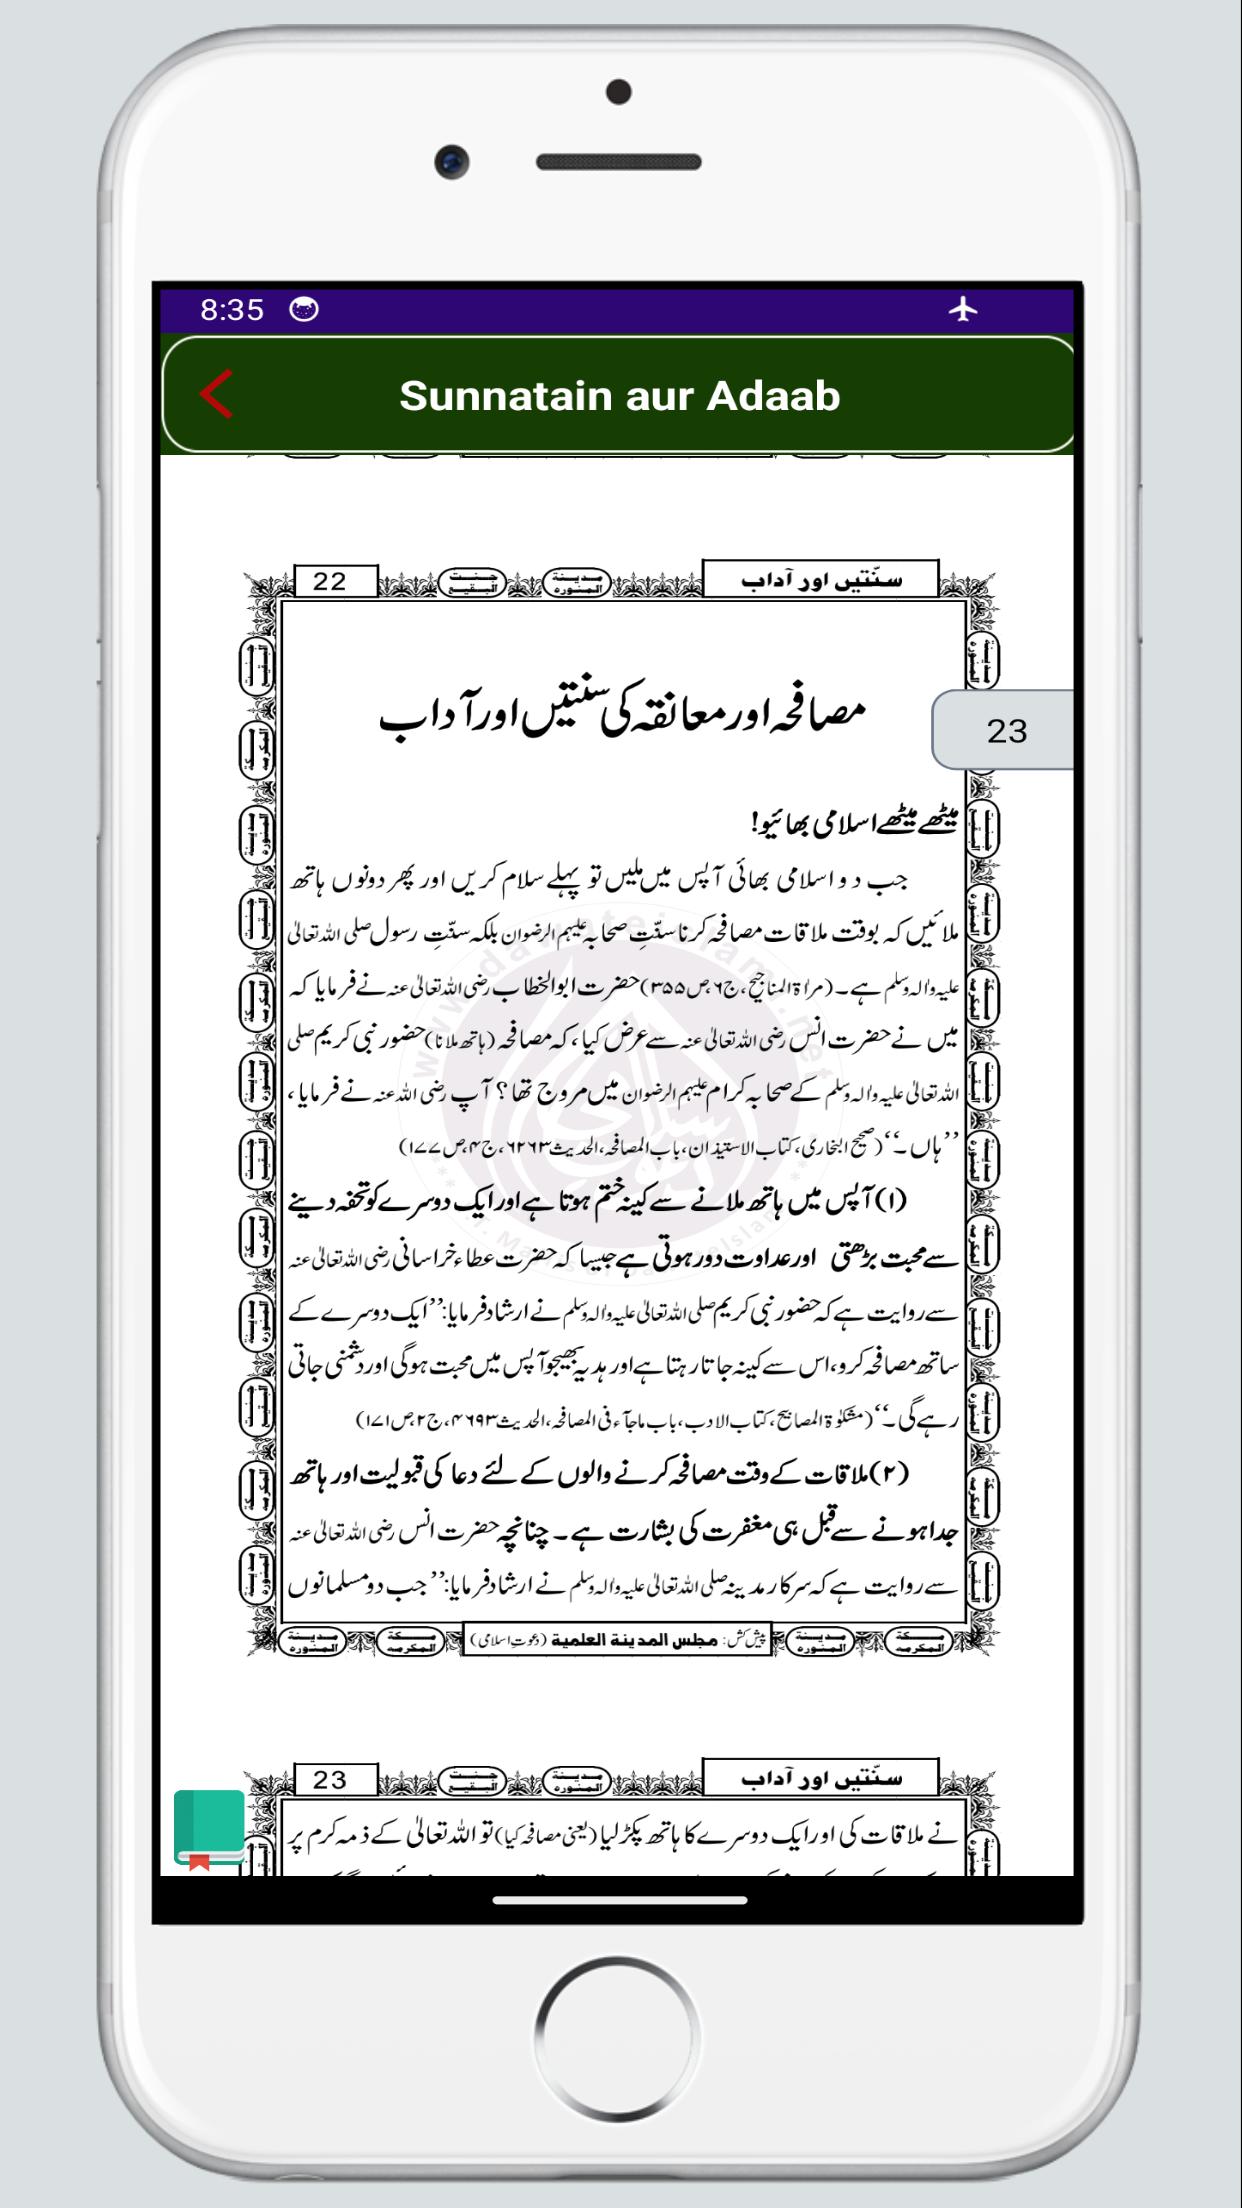 8:35
Sunnatain aur Adaab
سنّتیں اور آداب 22
23
مصافحہ اور معانقہ کی سنتیں اور آداب
میٹھے میٹھے اسلامی بھائیو!
جب دو اسلامی بھائی آپس میں ملیں تو پہلے سلام کریں اور پھر دونوں ہاتھ
ملائیں کہ بوقت ملاقات مصافحہ کرنا سنّتِ صحابہ علیہم الرضوان بلکہ سنّتِ رسول صلی اللہ تعالیٰ
علیہ واٰلہ وسلم ہے۔ (مراۃ المناجیح، ج۶، ص۳۵۵) حضرت ابو الخطاب رضی اللہ تعالیٰ عنہ نے فرمایا کہ
میں نے حضرت انس رضی اللہ تعالیٰ عنہ سے عرض کیا، کہ مصافحہ (ہاتھ ملانا) حضور نبی کریم صلی
اللہ تعالیٰ علیہ واٰلہ وسلم کے صحابہ کرام علیہم الرضوان میں مروج تھا؟ آپ رضی اللہ عنہ نے فرمایا،
’’ہاں۔‘‘ (صحیح البخاری، کتاب الاستیذان، باب المصافحہ، الحدیث ۶۲۶۳، ج۴، ص۱۷۷)
(۱) آپس میں ہاتھ ملانے سے کینہ ختم ہوتا ہے اور ایک دوسرے کو تحفہ دینے
سے محبت بڑھتی اور عداوت دور ہوتی ہے جیسا کہ حضرت عطاء خراسانی رضی اللہ تعالیٰ عنہ
سے روایت ہے کہ حضور نبی کریم صلی اللہ تعالیٰ علیہ واٰلہ وسلم نے ارشاد فرمایا: ’’ایک دوسرے کے
ساتھ مصافحہ کرو، اس سے کینہ جاتا رہتا ہے اور ہدیہ بھیجو آپس میں محبت ہوگی اور دشمنی جاتی
رہے گی۔‘‘ (مشکوٰۃ المصابیح، کتاب الادب، باب ماجآء فی المصافحہ، الحدیث ۴۶۹۳، ج۲، ص۱۷۱)
(۲) ملاقات کے وقت مصافحہ کرنے والوں کے لئے دعا کی قبولیت اور ہاتھ
جدا ہونے سے قبل ہی مغفرت کی بشارت ہے۔ چنانچہ حضرت انس رضی اللہ تعالیٰ عنہ
سے روایت ہے کہ سرکار مدینہ صلی اللہ تعالیٰ علیہ واٰلہ وسلم نے ارشاد فرمایا: ’’جب دو مسلمانوں
پیش کش: مجلس المدینة العلمیة (دعوتِ اسلامی)
سنّتیں اور آداب 23
نے ملاقات کی اور ایک دوسرے کا ہاتھ پکڑ لیا (یعنی مصافحہ کیا) تو اللہ تعالیٰ کے ذمہ کرم پر